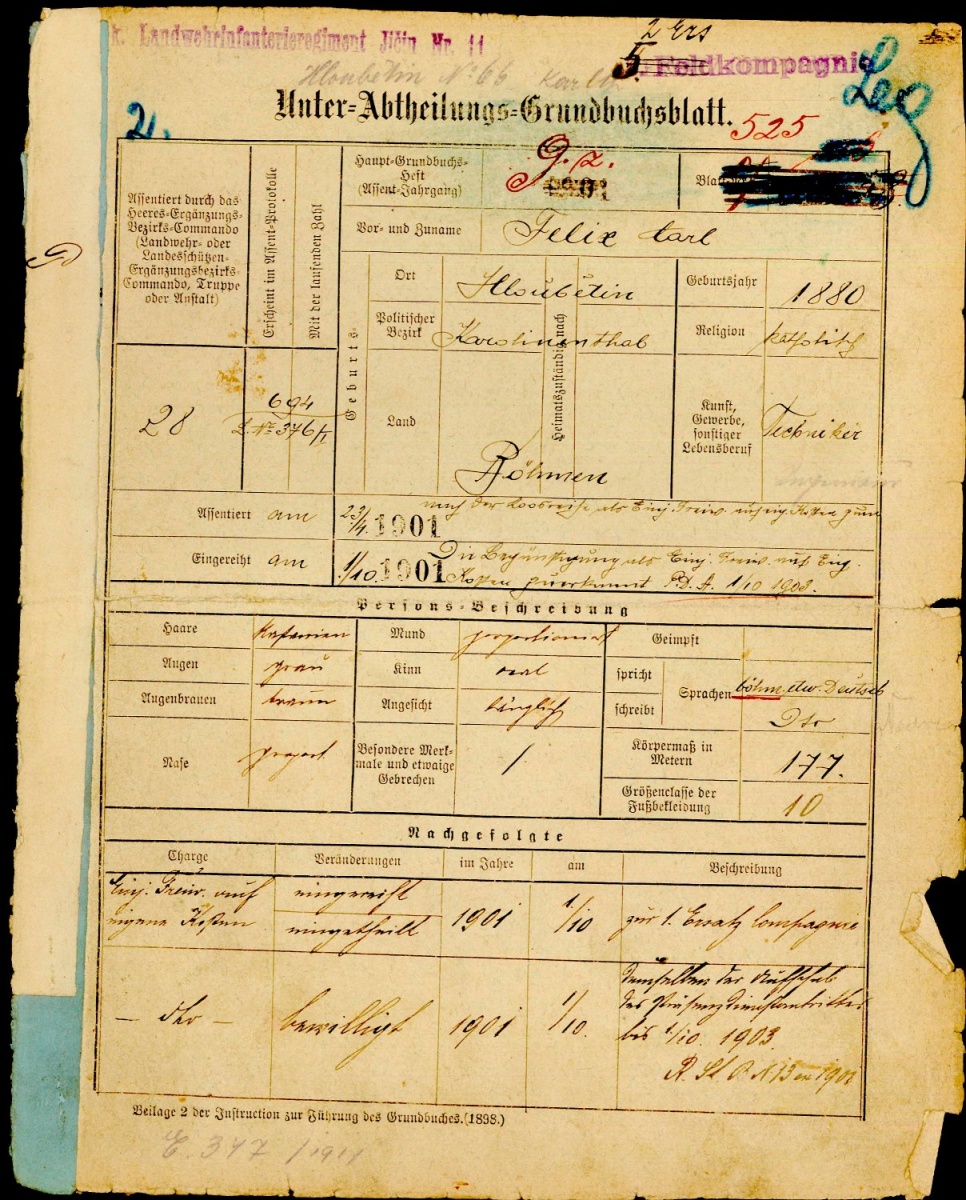 k. Landwehrinfanterieregiment Jičin Nr. 11
2 Ers
5. Feldkompagnie
Hloubetin No 66 Karl
Leo
Unter-Abtheilungs-Grundbuchsblatt.
2.
525
Assentiert durch das Heeres-Ergänzungs-Bezirks-Commando (Landwehr- oder Landesschützen-Ergänzungsbezirks-Commando, Truppe oder Anstalt)
Erscheint im Assent-Protokolle
Mit der laufenden Zahl
Haupt-Grundbuchs-Heft (Assent-Jahrgang)
Blatt
Vor- und Zuname
Felix Carl
Geburts-
Ort
Hloubětin
Geburtsjahr
1880
Politischer Bezirk
Karolinenthal
Heimatszuständig nach
Religion
katholisch
28
694
L. No 376/1
Land
Böhmen
Kunst, Gewerbe, sonstiger Lebensberuf
Techniker
Ingenieur
Assentiert am
23/4. 1901
nach der Losreihe als Einj. Freiw. auf eig. Kosten zum
Eingereiht am
1/10. 1901
Die Begünstigung als Einj. Freiw. auf Eig.
Kosten zuerkannt P.D.A. 1/10 1903.
Persons-Beschreibung
Haare
Kastanien
Mund
proportioniert
Geimpft
Augen
grau
Kinn
oval
spricht
Sprachen
böhm. etw. Deutsch
Augenbrauen
braun
Angesicht
länglich
schreibt
Dto
Nase
proport
Besondere Merkmale und etwaige Gebrechen
/
Körpermaß in Metern
177.
Größenclasse der Fußbekleidung
10
Nachgefolgte
Charge
Veränderungen
im Jahre
am
Beschreibung
Einj. Freiw. auf
eigene Kosten
eingereiht
eingetheilt
1901
1/10
zur 1. Ersatz Compagnie
— dto —
bewilligt
1901
1/10.
demselben der Aufschub
des Präsenzdienstantrittes
bis 1/10. 1903.
Beilage 2 der Instruction zur Führung des Grundbuches. (1898.)
E. 347 / 1911